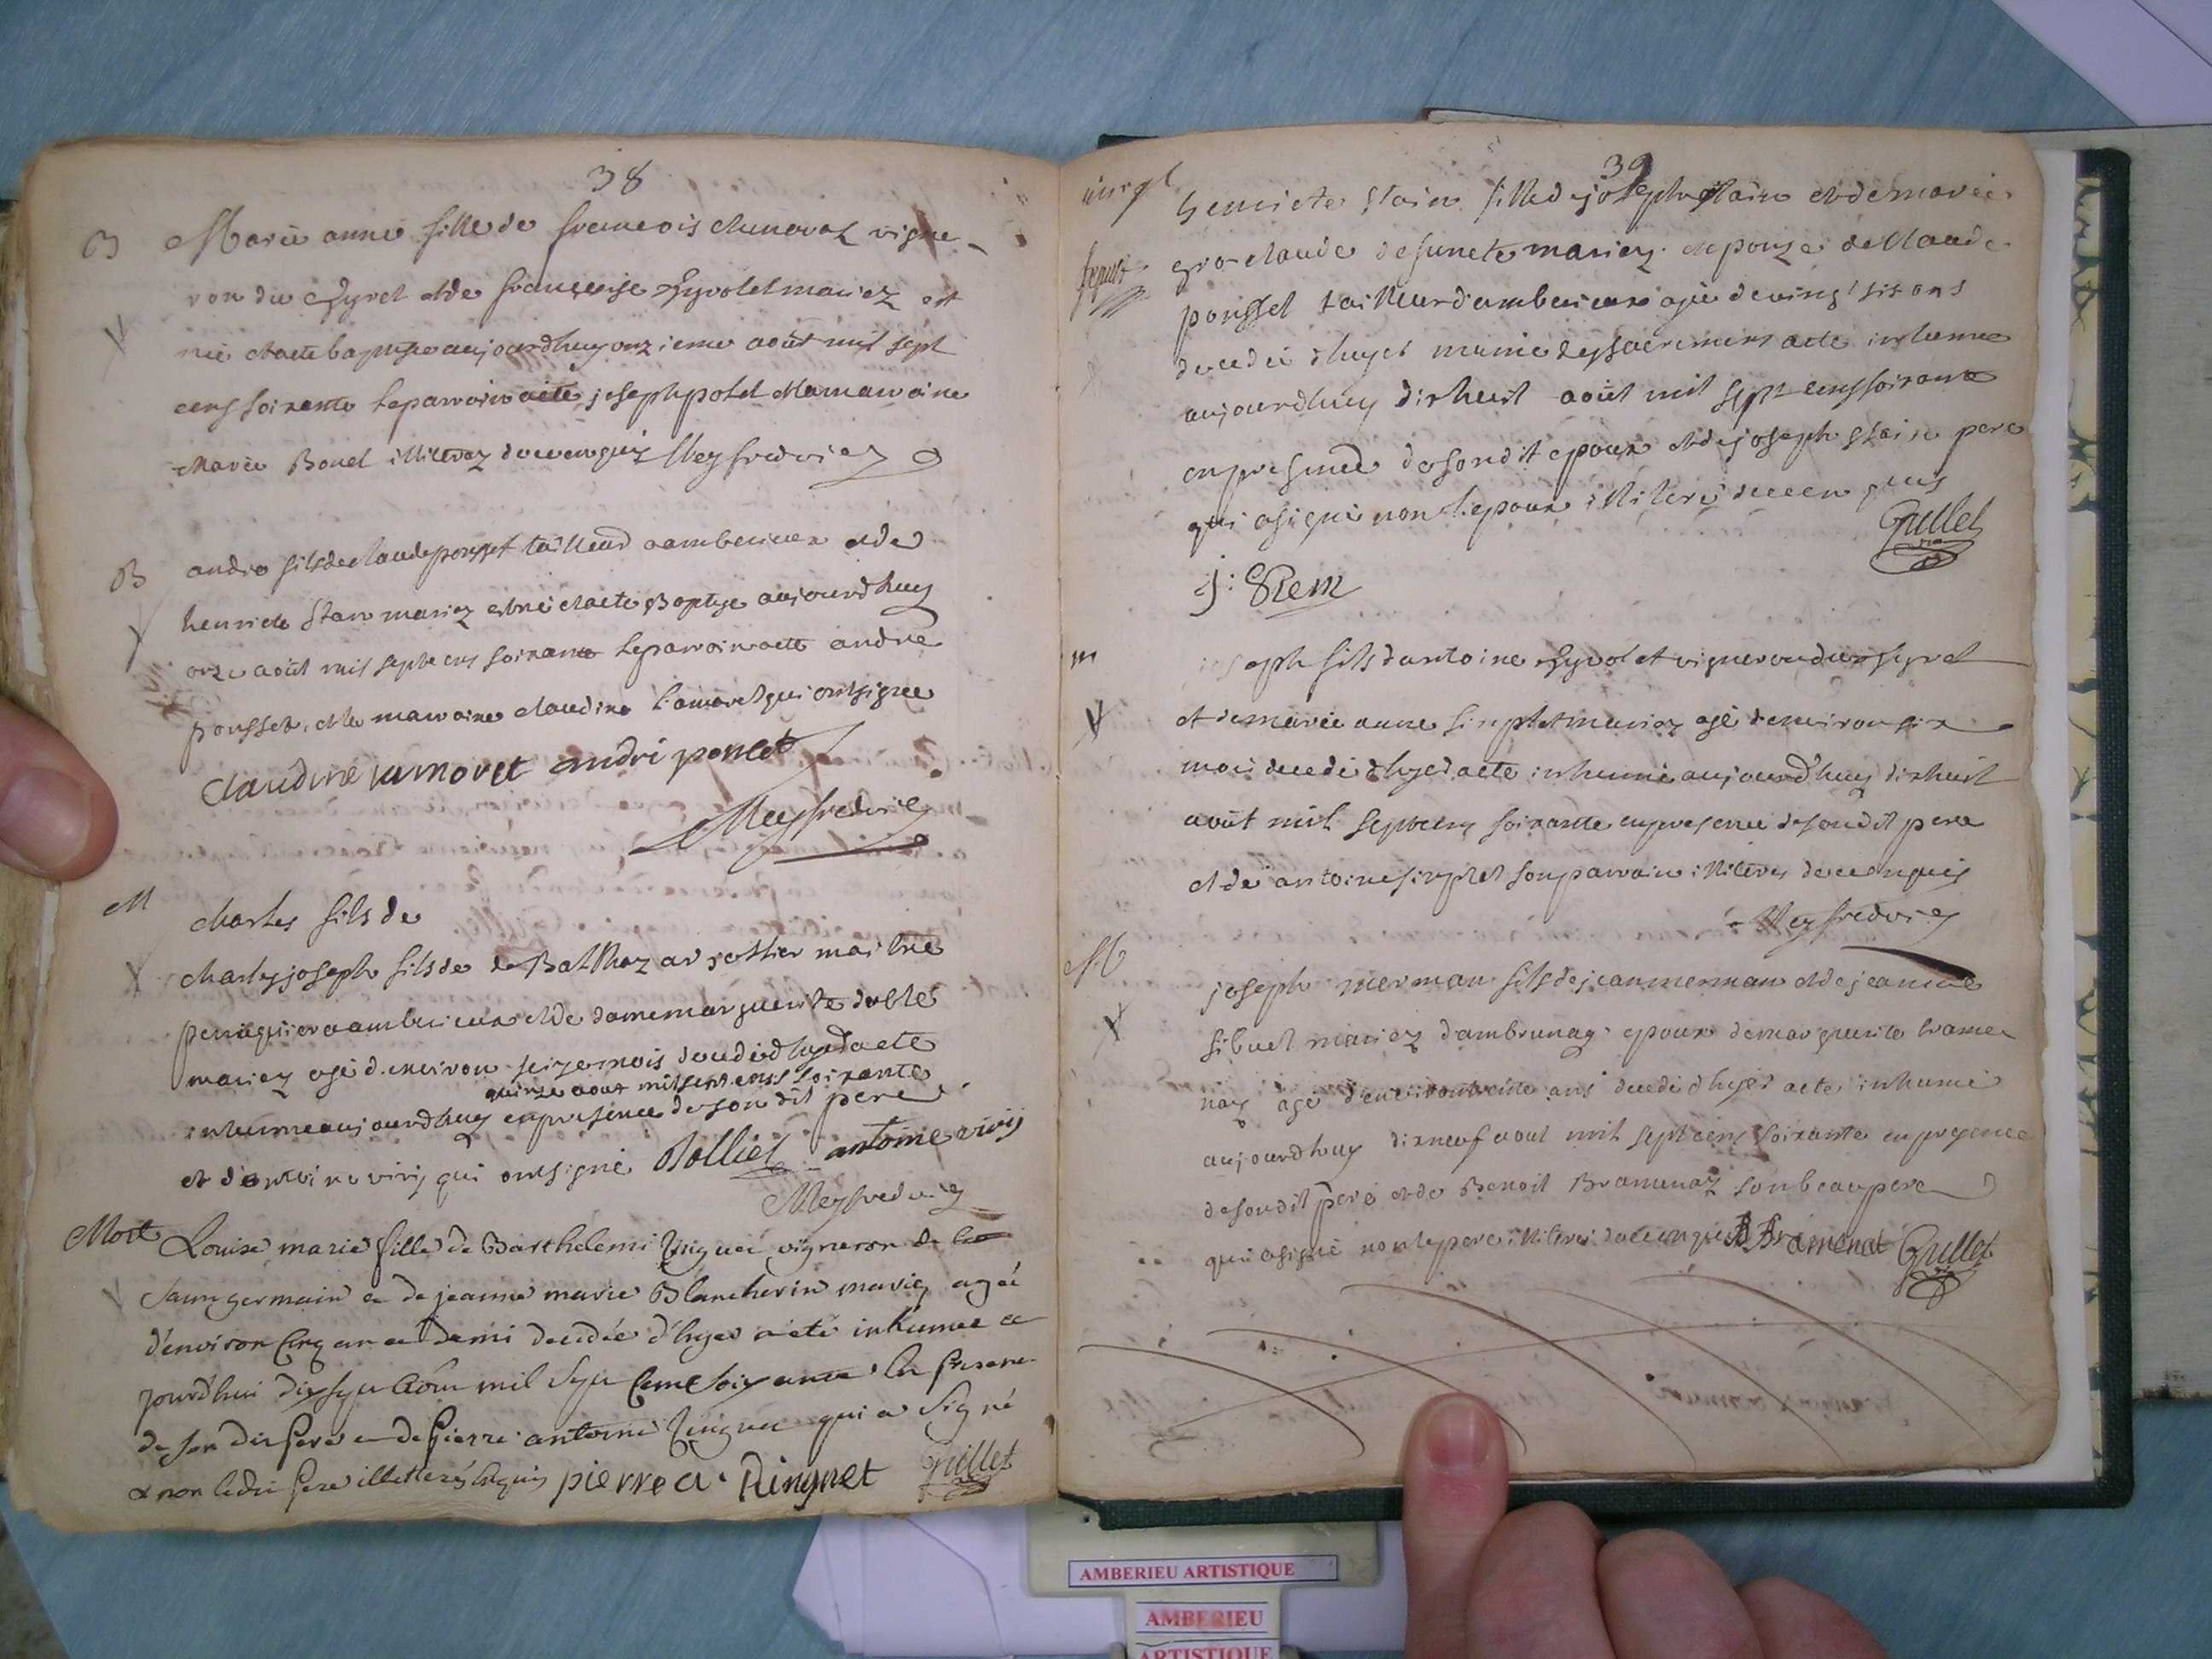 38
B
Marie anne fille de francois chenaval vigne-
ron du Tyret et de francoise Tyvolet mariez est
née et a eté baptisée aujourdhuy onzieme août mil sept
cens soixante le parrain a eté joseph potet et la marraine
Marie Bonet illiterez de ce enquis Meyfredvi
B
andré fils de claude pousset tailleur a amberieux et de
henriete Stain mariez est né et a eté Baptisé aujourdhuy
onze août mil sept cens soixante le parrain a eté andré
pousset, et la marraine claudine Lamoret qui ont signée
Claudine lamoret andré poncet
Meyfredvi
M
charles fils de
charles joseph fils de de Balthazar rollier maitre
peruquier a amberieux et de dame marguerite
mariez agé d'environ seize mois decedé d'hyer a eté
quinze aout mil sept cens soixante
inhumé aujourdhuy en presence de son dit pere
et d'antoine viviş qui ont signé Rolliet antoine vivis
Meyfredvi
Mort
Louise marie fille de Barthelemi Ringuet vigneron de
Saint germain et de jeanne marie Blancherin mariez agée
d'environ cinq an et demi decedée d'hyer a eté inhumée au
jourd'hui dix sept aout mil sept cent soixante en presence
de son dit pere et de Pierre antoine Ringuet qui a signé
et non ledit pere illetteré enquis pierre a. Ringuet Grillet
39
henriete Stain fille de joseph Stain et de marie
gros claude defuncte mariez et epouze de Claude
pousset tailleur d'amberieux agée de vingt six ans
decedée d'hyer munie des sacremens a eté inhumée
aujourdhuy dixhuit août mil sept cens soixante
en presence de son dit epoux et de joseph Stain pere
qui a signé non l'epoux illiteré de ce enquis
Grillet
j: Stem
m
joseph fils d'antoine Tyvolet vigneron du Tyret
et de marie anne simplet mariez agé d'environ six
mois decedé d'hyer a eté inhumé aujourd'huy dixhuit
août mil sept cens soixante en presence de son dit pere
et de antoine simplet son parrain illiterez de ce enquis
Meyfredvi
M
joseph merman fils de jean merman et de jeanne
sibuet mariez d'ambrunay epoux de marguerite brame
nay agé d'environ trente ans decedé d'hyer a eté inhumé
aujourdhuy dixneuf aout mil sept cens soixante en presence
de son dit pere et de Benoit Bramenaz son beaupere
qui a signé non le pere illiteré de ce enquis B Bramenat Grillet
AMBERIEU ARTISTIQUE
AMBERIEU
ARTISTIQUE